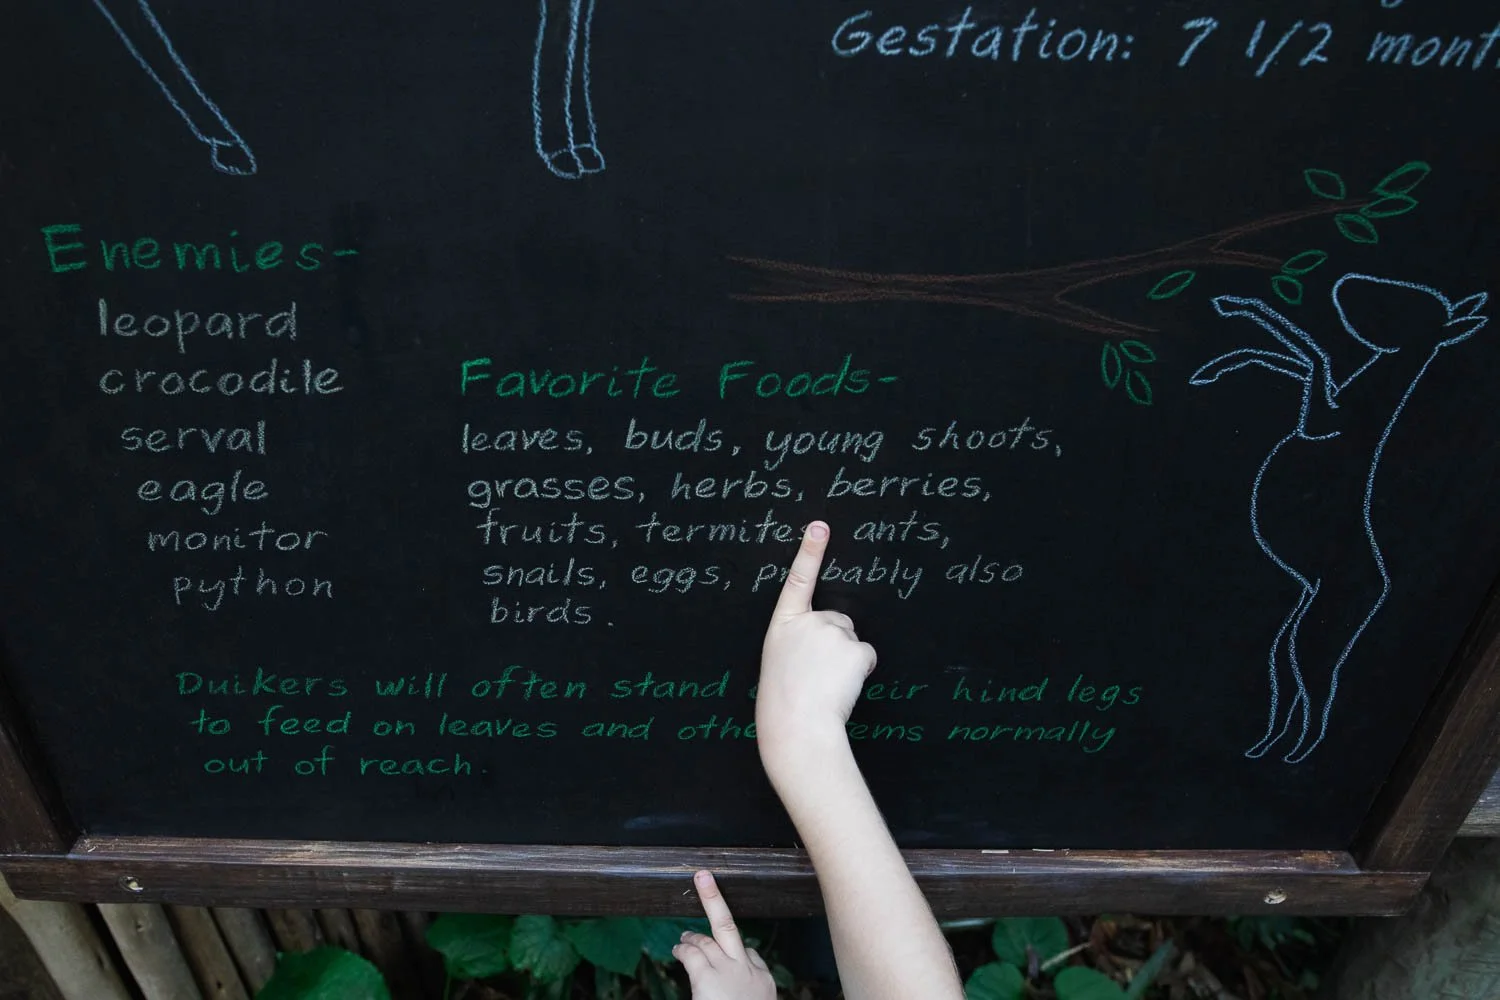 Gestation: 7 1/2 mont
Enemies-
leopard
crocodile
serval
eagle
monitor
python
Favorite Foods-
leaves, buds, young shoots,
grasses, herbs, berries,
fruits, termites ants,
snails, eggs, probably also
birds.
Duikers will often stand hind legs
to feed on leaves and normally
out of reach.